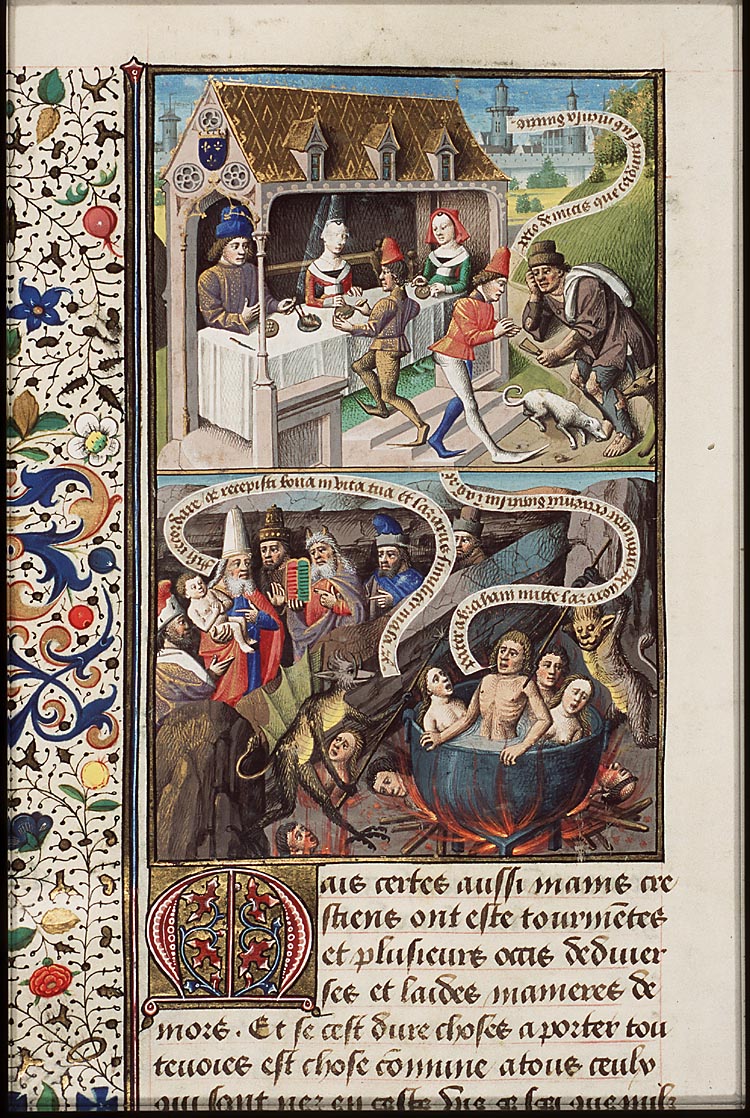 de micis que cadunt de
fili recordare q recepisti bona in vita tua et lazarus similiter
pater abraham mitte lazarum
Mais certes aussi mains cre
stiens ont este tourmētes
et plusieurs occis de diuer
ses et laides manieres de
mors. Et se cest dure choses a porter tou
teuoies est chose cōmune a tous ceulx
qui sont nez en ceste vie ce scai que nulz